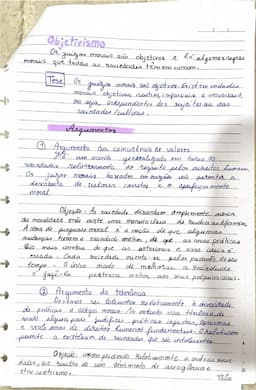 Objetivismo
Os juízos morais são objetivos e há algumas regras
morais que todas as sociedades têm em comum.
Tese Os juízos morais são objetivos. Existem verdades
morais objetivas, neutras, imparciais e universais,
ou seja, independentes dos sujeitos ou das
sociedades/culturas.
Argumentos
① Argumento da coincidência de valores
Há um acordo generalizado em todas as
sociedades relativamente ao respeito pelos direitos humanos.
Os juízos morais baseados na razão vão permitir a
descoberta de valores corretos e o aperfeiçoamento
moral.
Objeção: As sociedades discordam amplamente acerca
da moralidade e não existe uma maneira clara de resolver as diferenças.
A ideia de progresso moral é a noção de que algumas
mudanças tornam a sociedade melhor, de que as novas práticas
são mais corretas do que as anteriores e essa ideia é
errada. Cada sociedade orienta-se pelos padrões do seu
tempo. O único modo de melhorar a sociedade
é fazê-la
② Argumento da tolerância
Devemos ser tolerantes relativamente à diversidade
de práticas e códigos morais. No entanto essa tolerância, de
modo algum pode justificar práticas injustas, opressoras
e violadoras de direitos humanos fundamentais. O relativismo
permite a existência de sociedades que são intolerantes.
Objeção: relativamente a outras socie-
dades, é resultado de um sentimento de arrogância e
etnocentrismo.